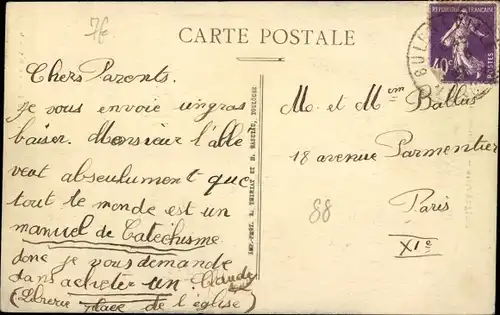 7€
CARTE POSTALE
REPUBLIQUE FRANÇAISE
40c
POSTES
Chers Parents.
je vous envoie un gros
baiser. Monsieur l'abbé
veut abseulument que
tout le monde est un
manuel de Catéchisme
donc je vous demande
dans acheter un. Claude
(Librerie place de l'église)
TOULOUSE
M. et Mem Ballus
18 avenue Parmentier
Paris
XIe
88